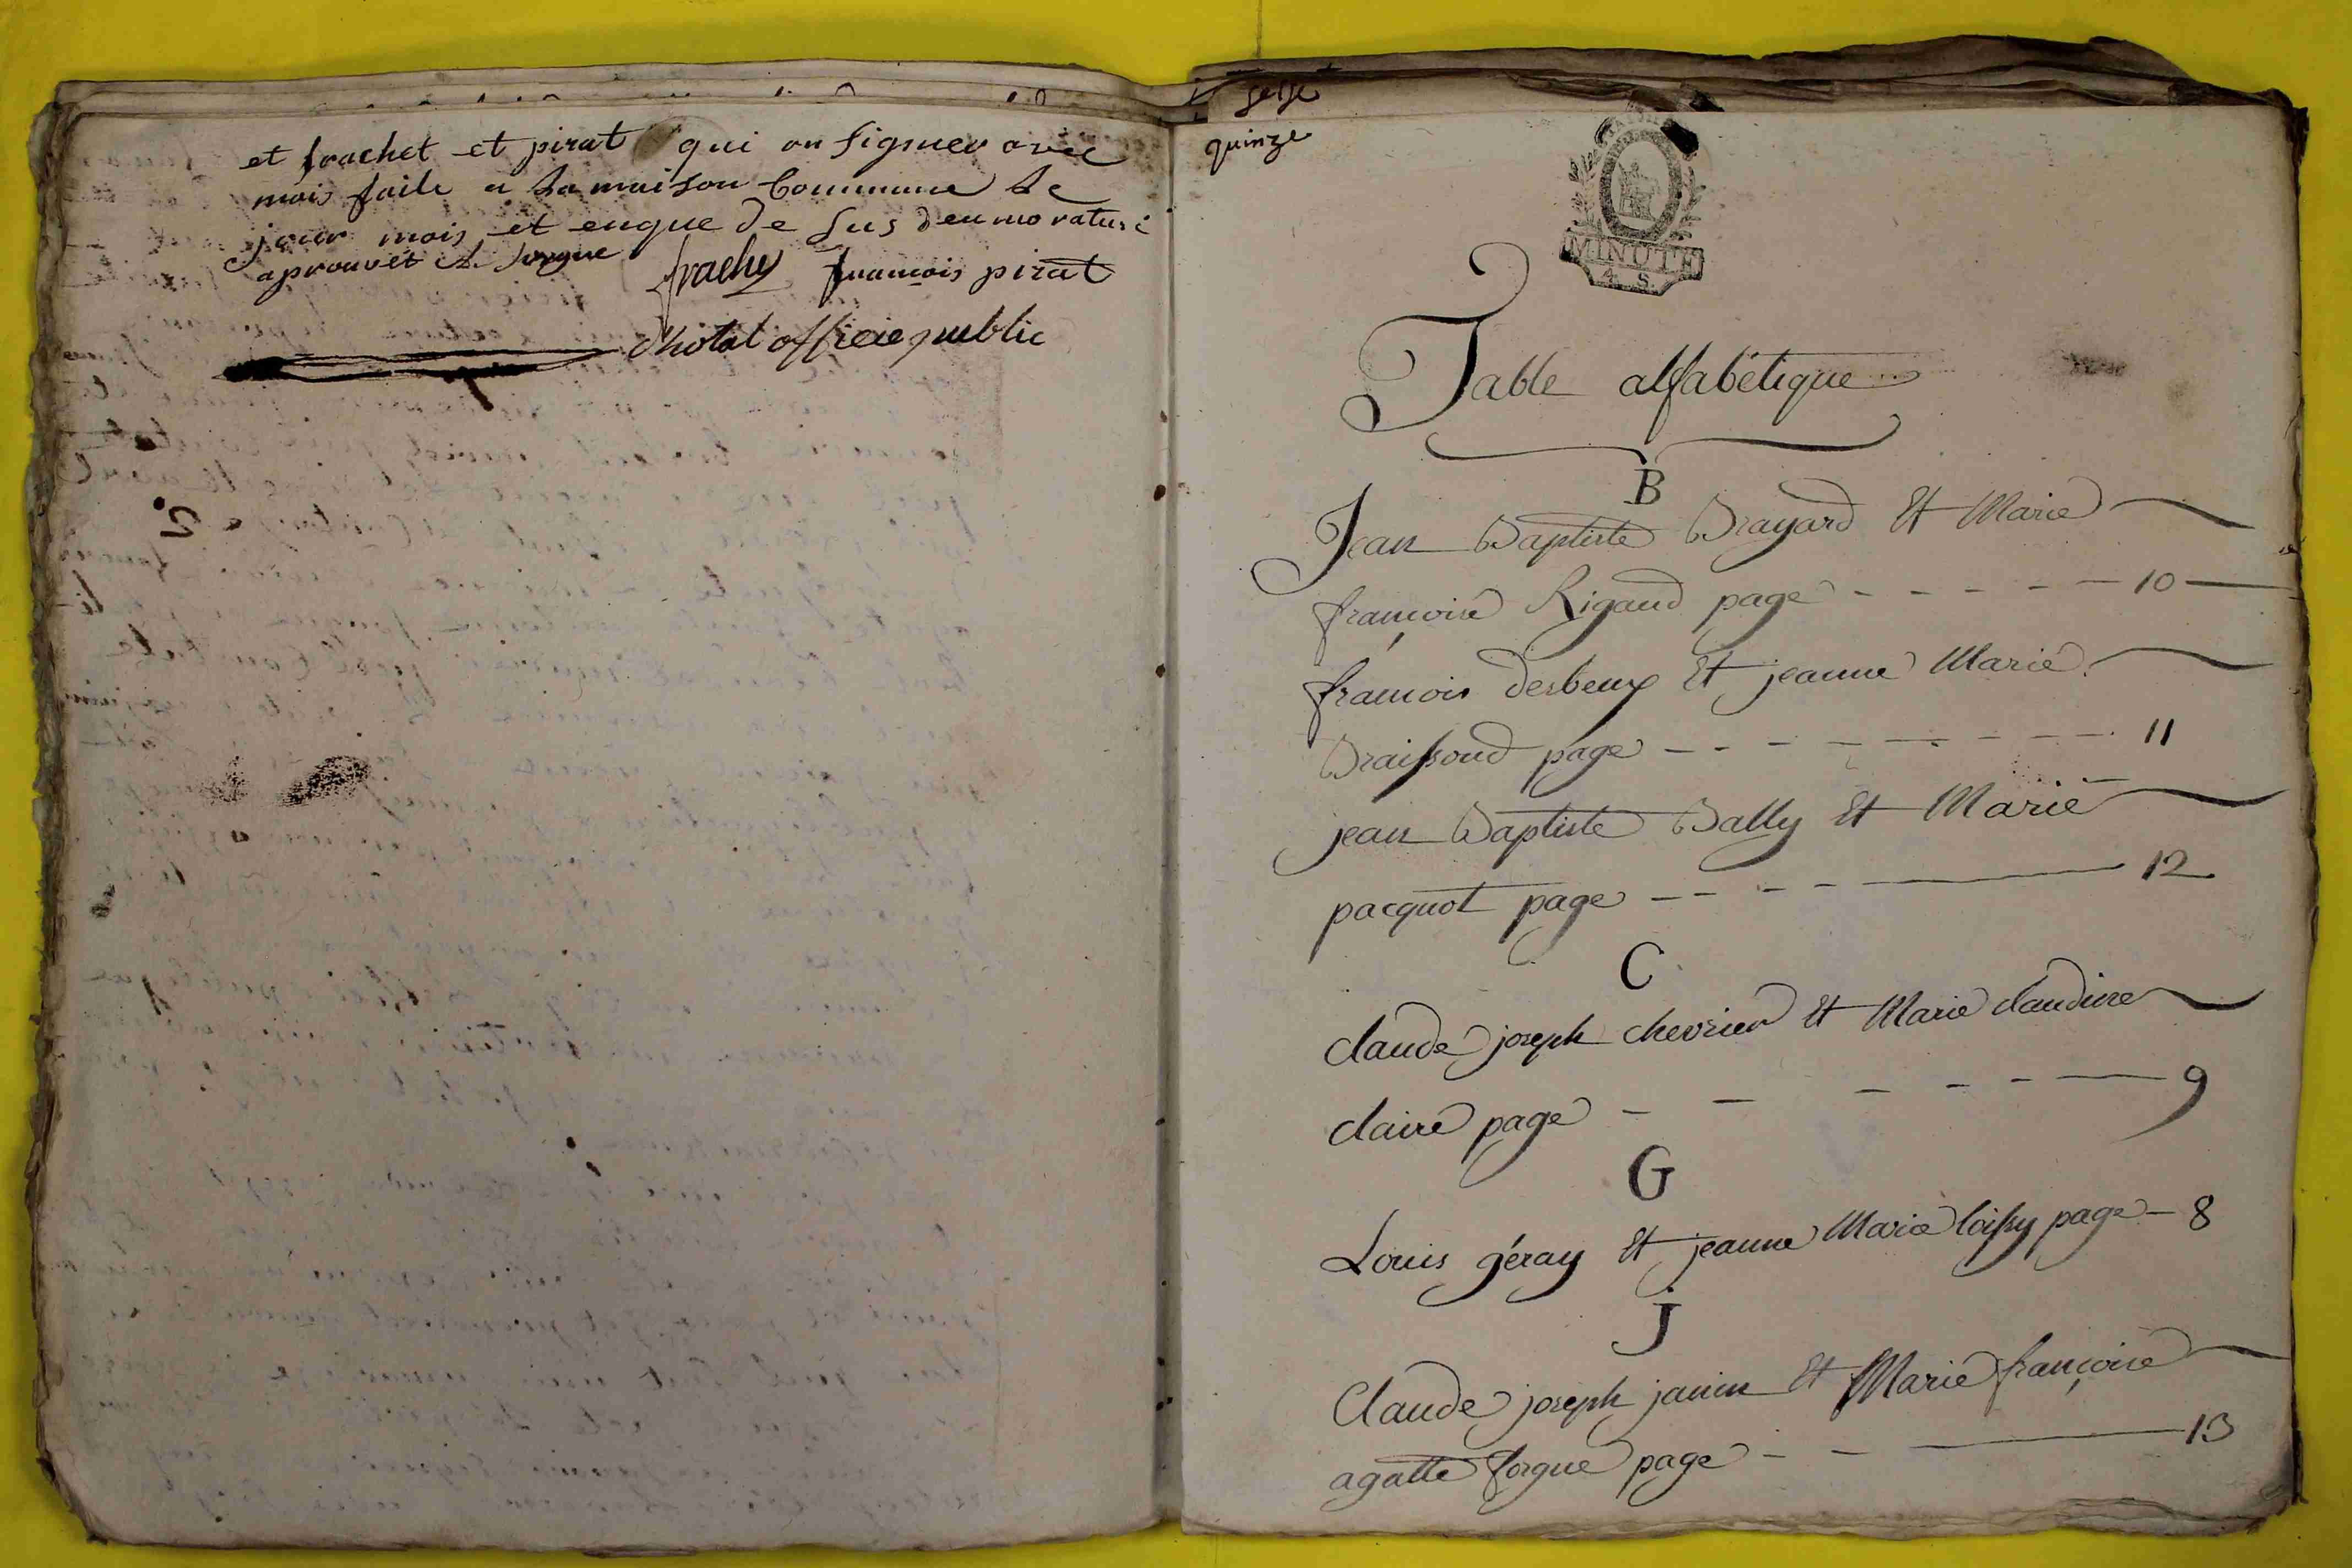 et frachet et pirat qui on signer avec
mois faite a la maison Commune le
jour mois et enque de sus denmoratus
aprouvet
frachet francois pirat
officie public
seise
quinze
MINUTE
4. S.
Table alfabétique
B
Jean Baptiste Brayard Et Marie
françoise Rigaud page 10
francois desbeux Et jeanne Marie
Braissoud page 11
jean Baptiste Bally Et Marie
pacquot page 12
C
claude joseph chevrier Et Marie claudine
claire page 9
G
Louis géray Et jeanne Marie loissy page 8
J
Claude joseph janin Et Marie françoise
agatte forgue page 13